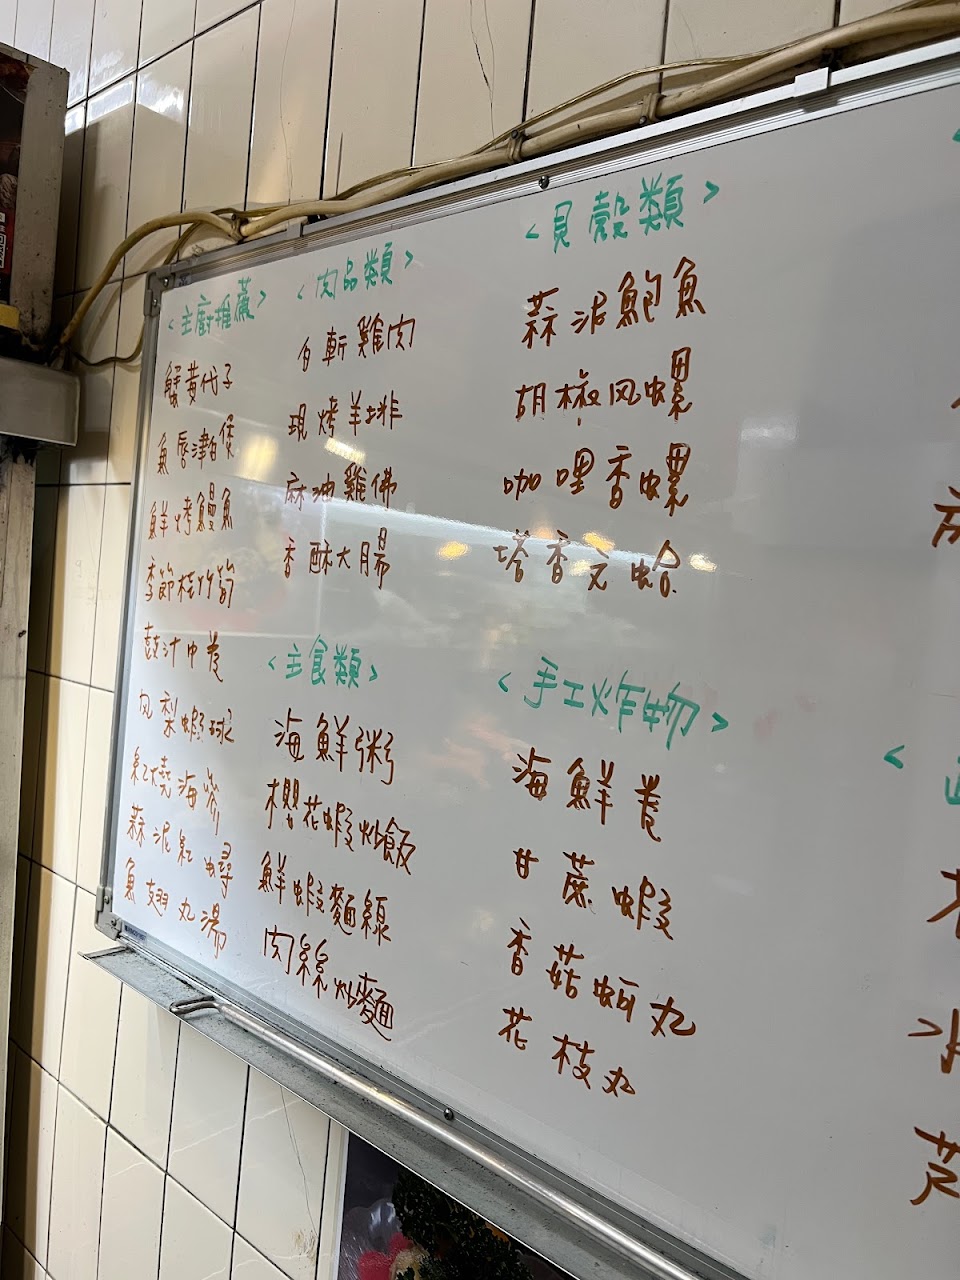 <主廚推薦>
蟹黃代子
魚唇津白煲
鮮烤鰻魚
季節桂竹筍
鼓汁中卷
凤梨蝦球
紅燒海參
蒜泥紅蟳
魚翅丸湯
<肉品類>
白斬雞肉
現烤羊排
麻油雞佛
香酥大腸
<主食類>
海鮮粥
櫻花蝦炒飯
鮮蝦麵線
肉絲炒麵
<貝殼類>
蒜泥鮑魚
胡椒风螺
咖哩香螺
塔香文蛤
<手工炸物>
海鮮卷
甘蔗蝦
香菇蚵丸
花枝丸